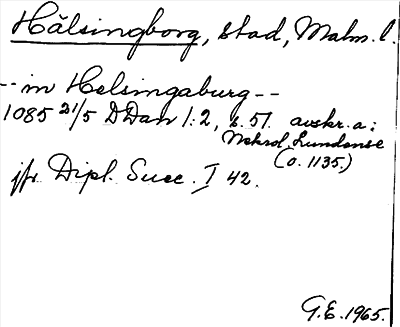 Hälsingborg, stad, Malm. l.
-- in Helsingaburg --
1085 21/5 DDan 1:2, s. 51. avskr. a:
Nekrol. Lundense
(o. 1135.)
jfr Dipl. Suec. I 42.
G.E. 1965.